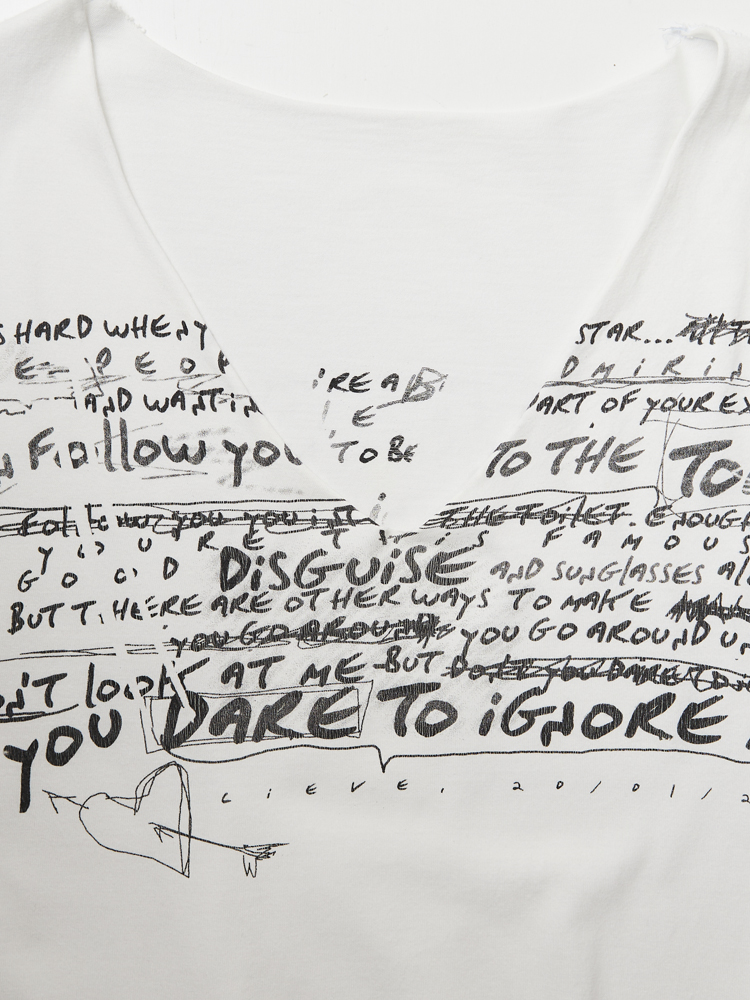 S HARD WHEN Y STAR...
E PEOP 'RE A B DMIRIN
AND WANTIN E PART OF YOUR EX
N FOLLOW YOU TO BE TO THE TO
FOLLOW YOU YOU IN THE TOILET. ENOUGH
YOU'RE THIS FAMOUS
GOOD DISGUISE AND SUNGLASSES AL
BUT THERE ARE OTHER WAYS TO MAKE
YOU GO AROUND YOU GO AROUND UN
ON'T LOOK AT ME BUT
YOU DARE TO IGNORE
LIEVE, 20/01/2